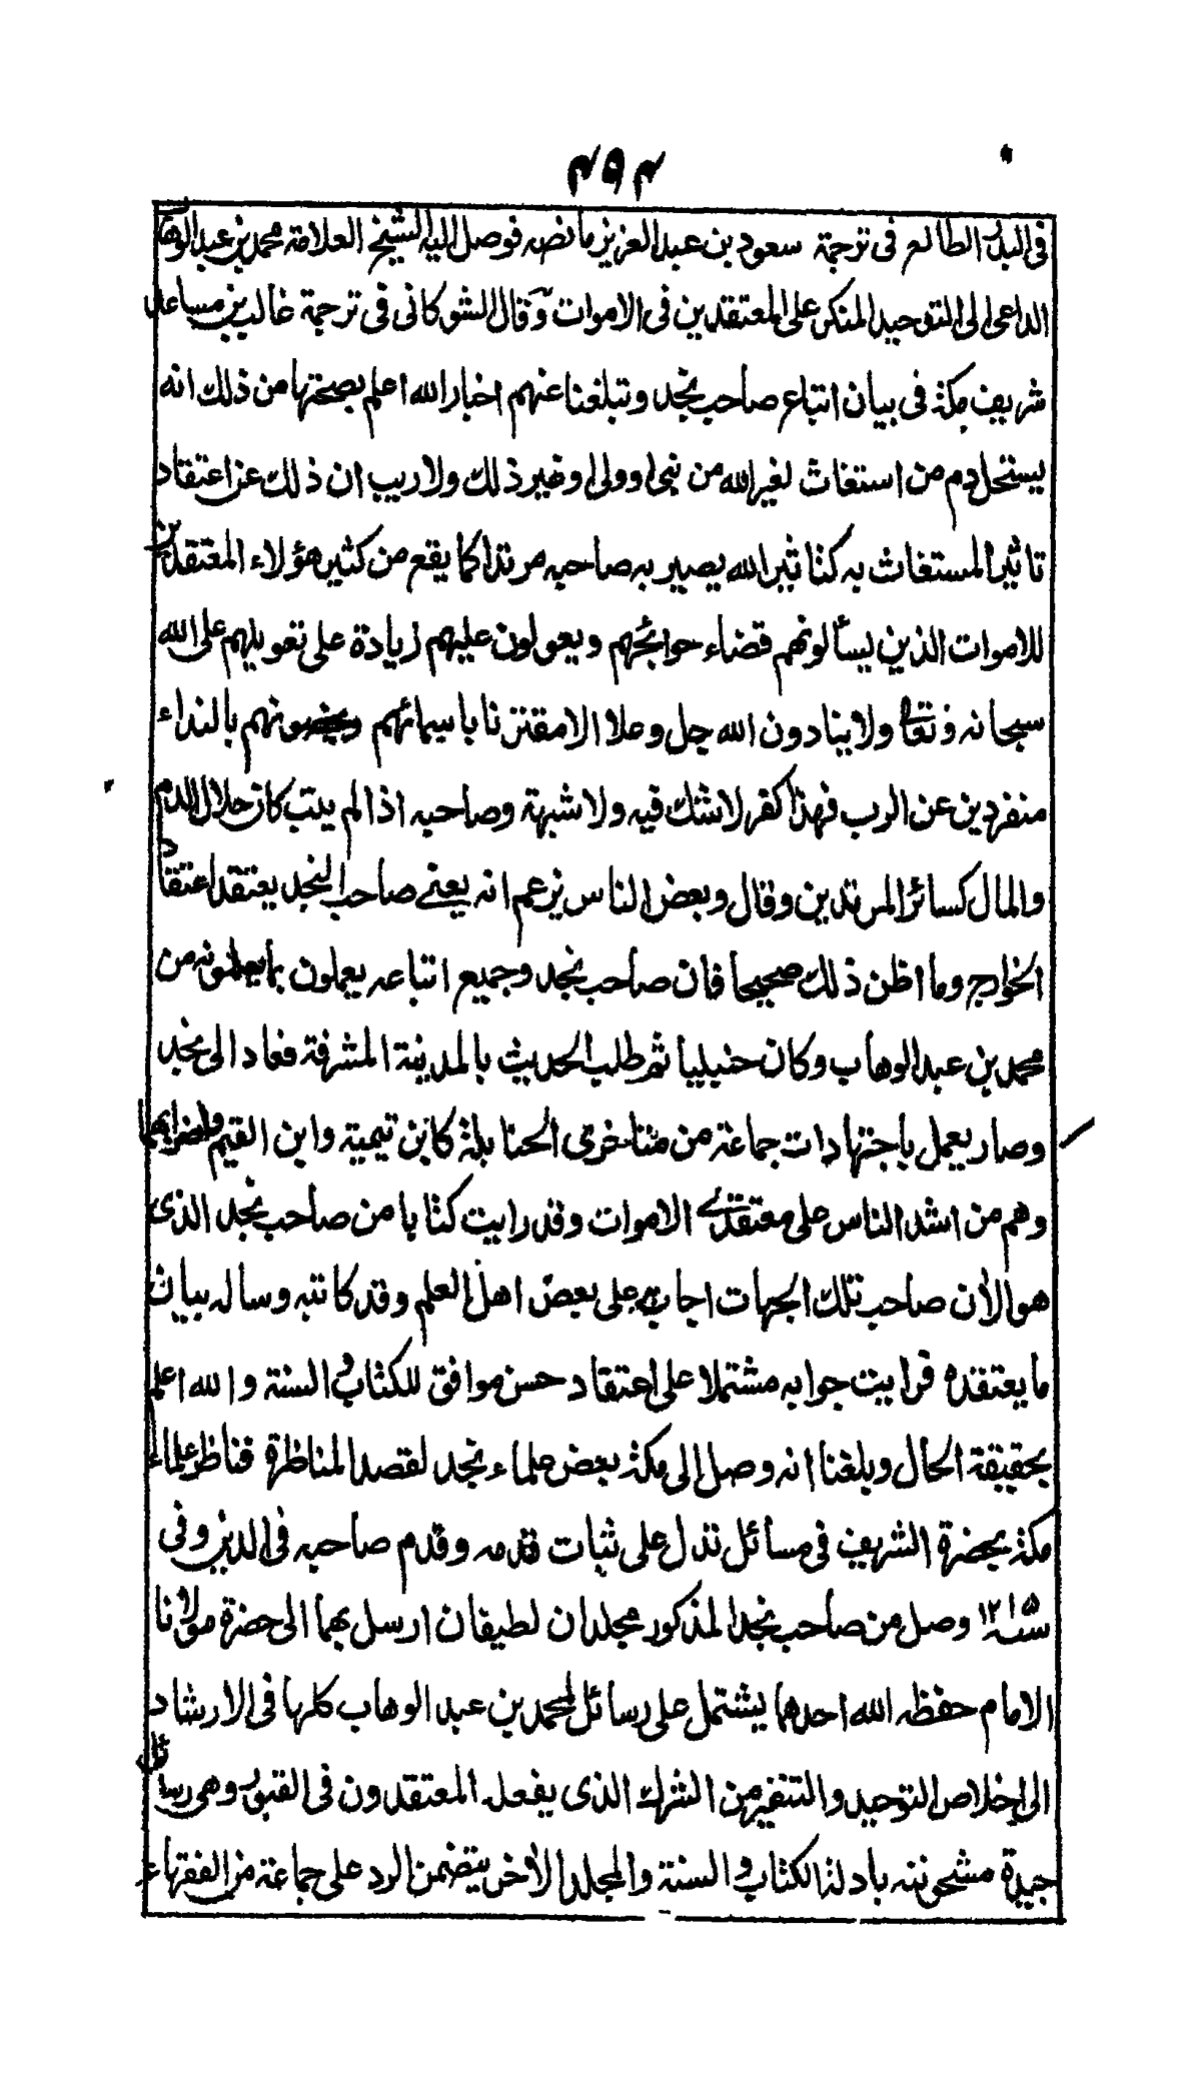 ٤٩٤
فى البدر الطالع فى ترجمة سعود بن عبد العزيز ما نصه فوصل اليه الشيخ العلامة محمد بن عبد الوهاب
الداعى الى التوحيد المنكر على المعتقدين فى الاموات وقال الشوكانى فى ترجمة غالب بن مساعد
شريف مكة فى بيان اتباع صاحب نجد وتبلغنا عنهم اخبار الله اعلم بصحتها من ذلك انه
يستحل دم من استغاث لغير الله من نبى او ولى او غير ذلك ولا ريب ان ذلك عن اعتقاد
تاثير المستغاث به كتاثير الله يصير به صاحبه مرتدا كما يقع من كثير هؤلاء المعتقدين
للاموات الذين يسألونهم قضاء حوائجهم ويعولون عليهم زيادة على تعويلهم على الله
سبحانه وتعالى ولا ينادون الله جل وعلا الا مقترنا باسمائهم ويخصونهم بالنداء
منفردين عن الرب فهذا كفر لا شك فيه ولا شبهة وصاحبه اذا لم يتب كان حلال الدم
والمال كسائر المرتدين وقال وبعض الناس يزعم انه يعنے صاحب النجد يعتقد اعتقاد
الخوارج وما اظن ذلك صحيحا فان صاحب نجد وجميع اتباعه يعملون بما يعلمونه من
محمد بن عبد الوهاب وكان حنبليا ثم طلب الحديث بالمدينة المشرفة فعاد الى نجد
وصار يعمل باجتهادات جماعة من متاخرى الحنابلة كابن تيمية وابن القيم واضرابهما
وهم من اشد الناس على معتقدے الاموات وقد رايت كتابا من صاحب نجد الذى
هو الأن صاحب تلك الجهات اجاب به على بعض اهل العلم وقد كاتبه وساله بيان
ما يعتقده فرايت جوابه مشتملا على اعتقاد حسن موافق للكتاب والسنة والله اعلم
بحقيقة الحال وبلغنا انه وصل الى مكة بعض علماء نجد لقصد المناظرة فناظر علماء
مكة بحضرة الشريف فى مسائل تدل على ثبات قدمه وقدم صاحبه فى الدين وفى
سنة ١٢١٥ وصل من صاحب نجد المذكور مجلدان لطيفان ارسل بهما الى حضرة مولانا
الامام حفظه الله احدهما يشتمل على رسائل لمحمد بن عبد الوهاب كلها فى الارشاد
الى اخلاص التوحيد والتنفير من الشرك الذى يفعله المعتقدون فى القبور وهى رسائل
جيدة مشحونة بادلة الكتاب والسنة والمجلد الأخر يتضمن الرد على جماعة من الفقهاء